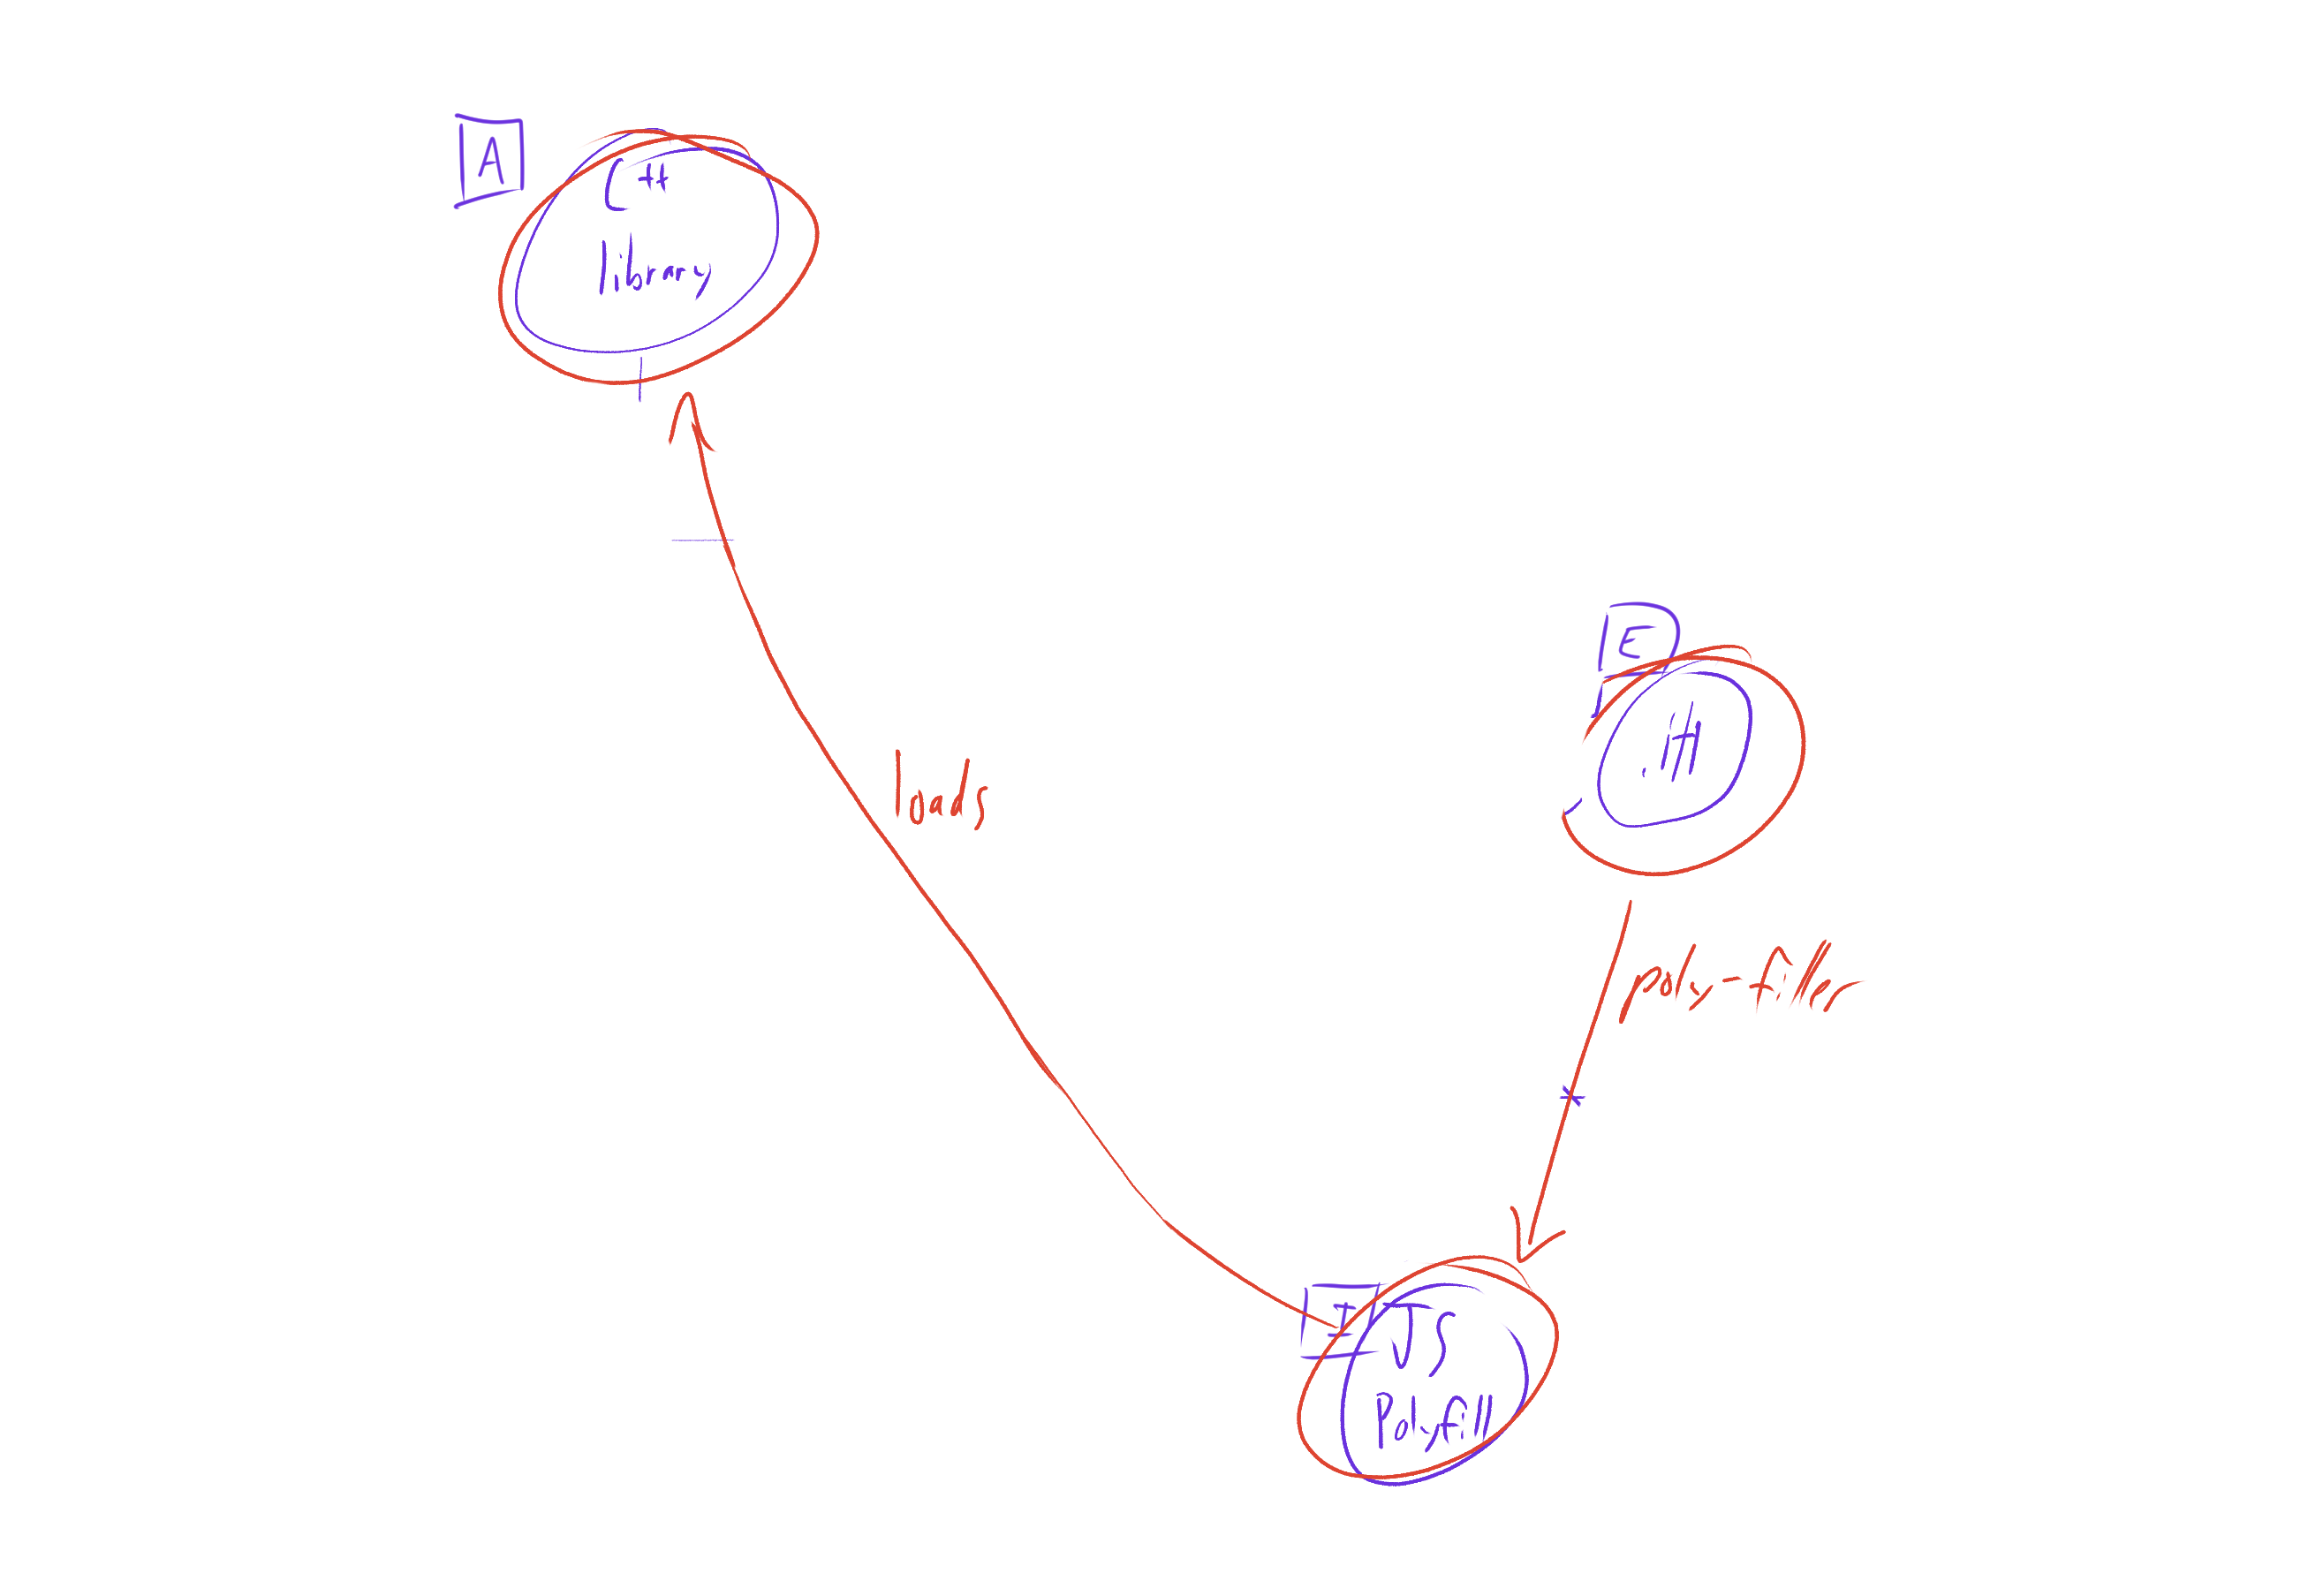 A
C++
library
E
loads
poly-filler
I
JS
Polyfill